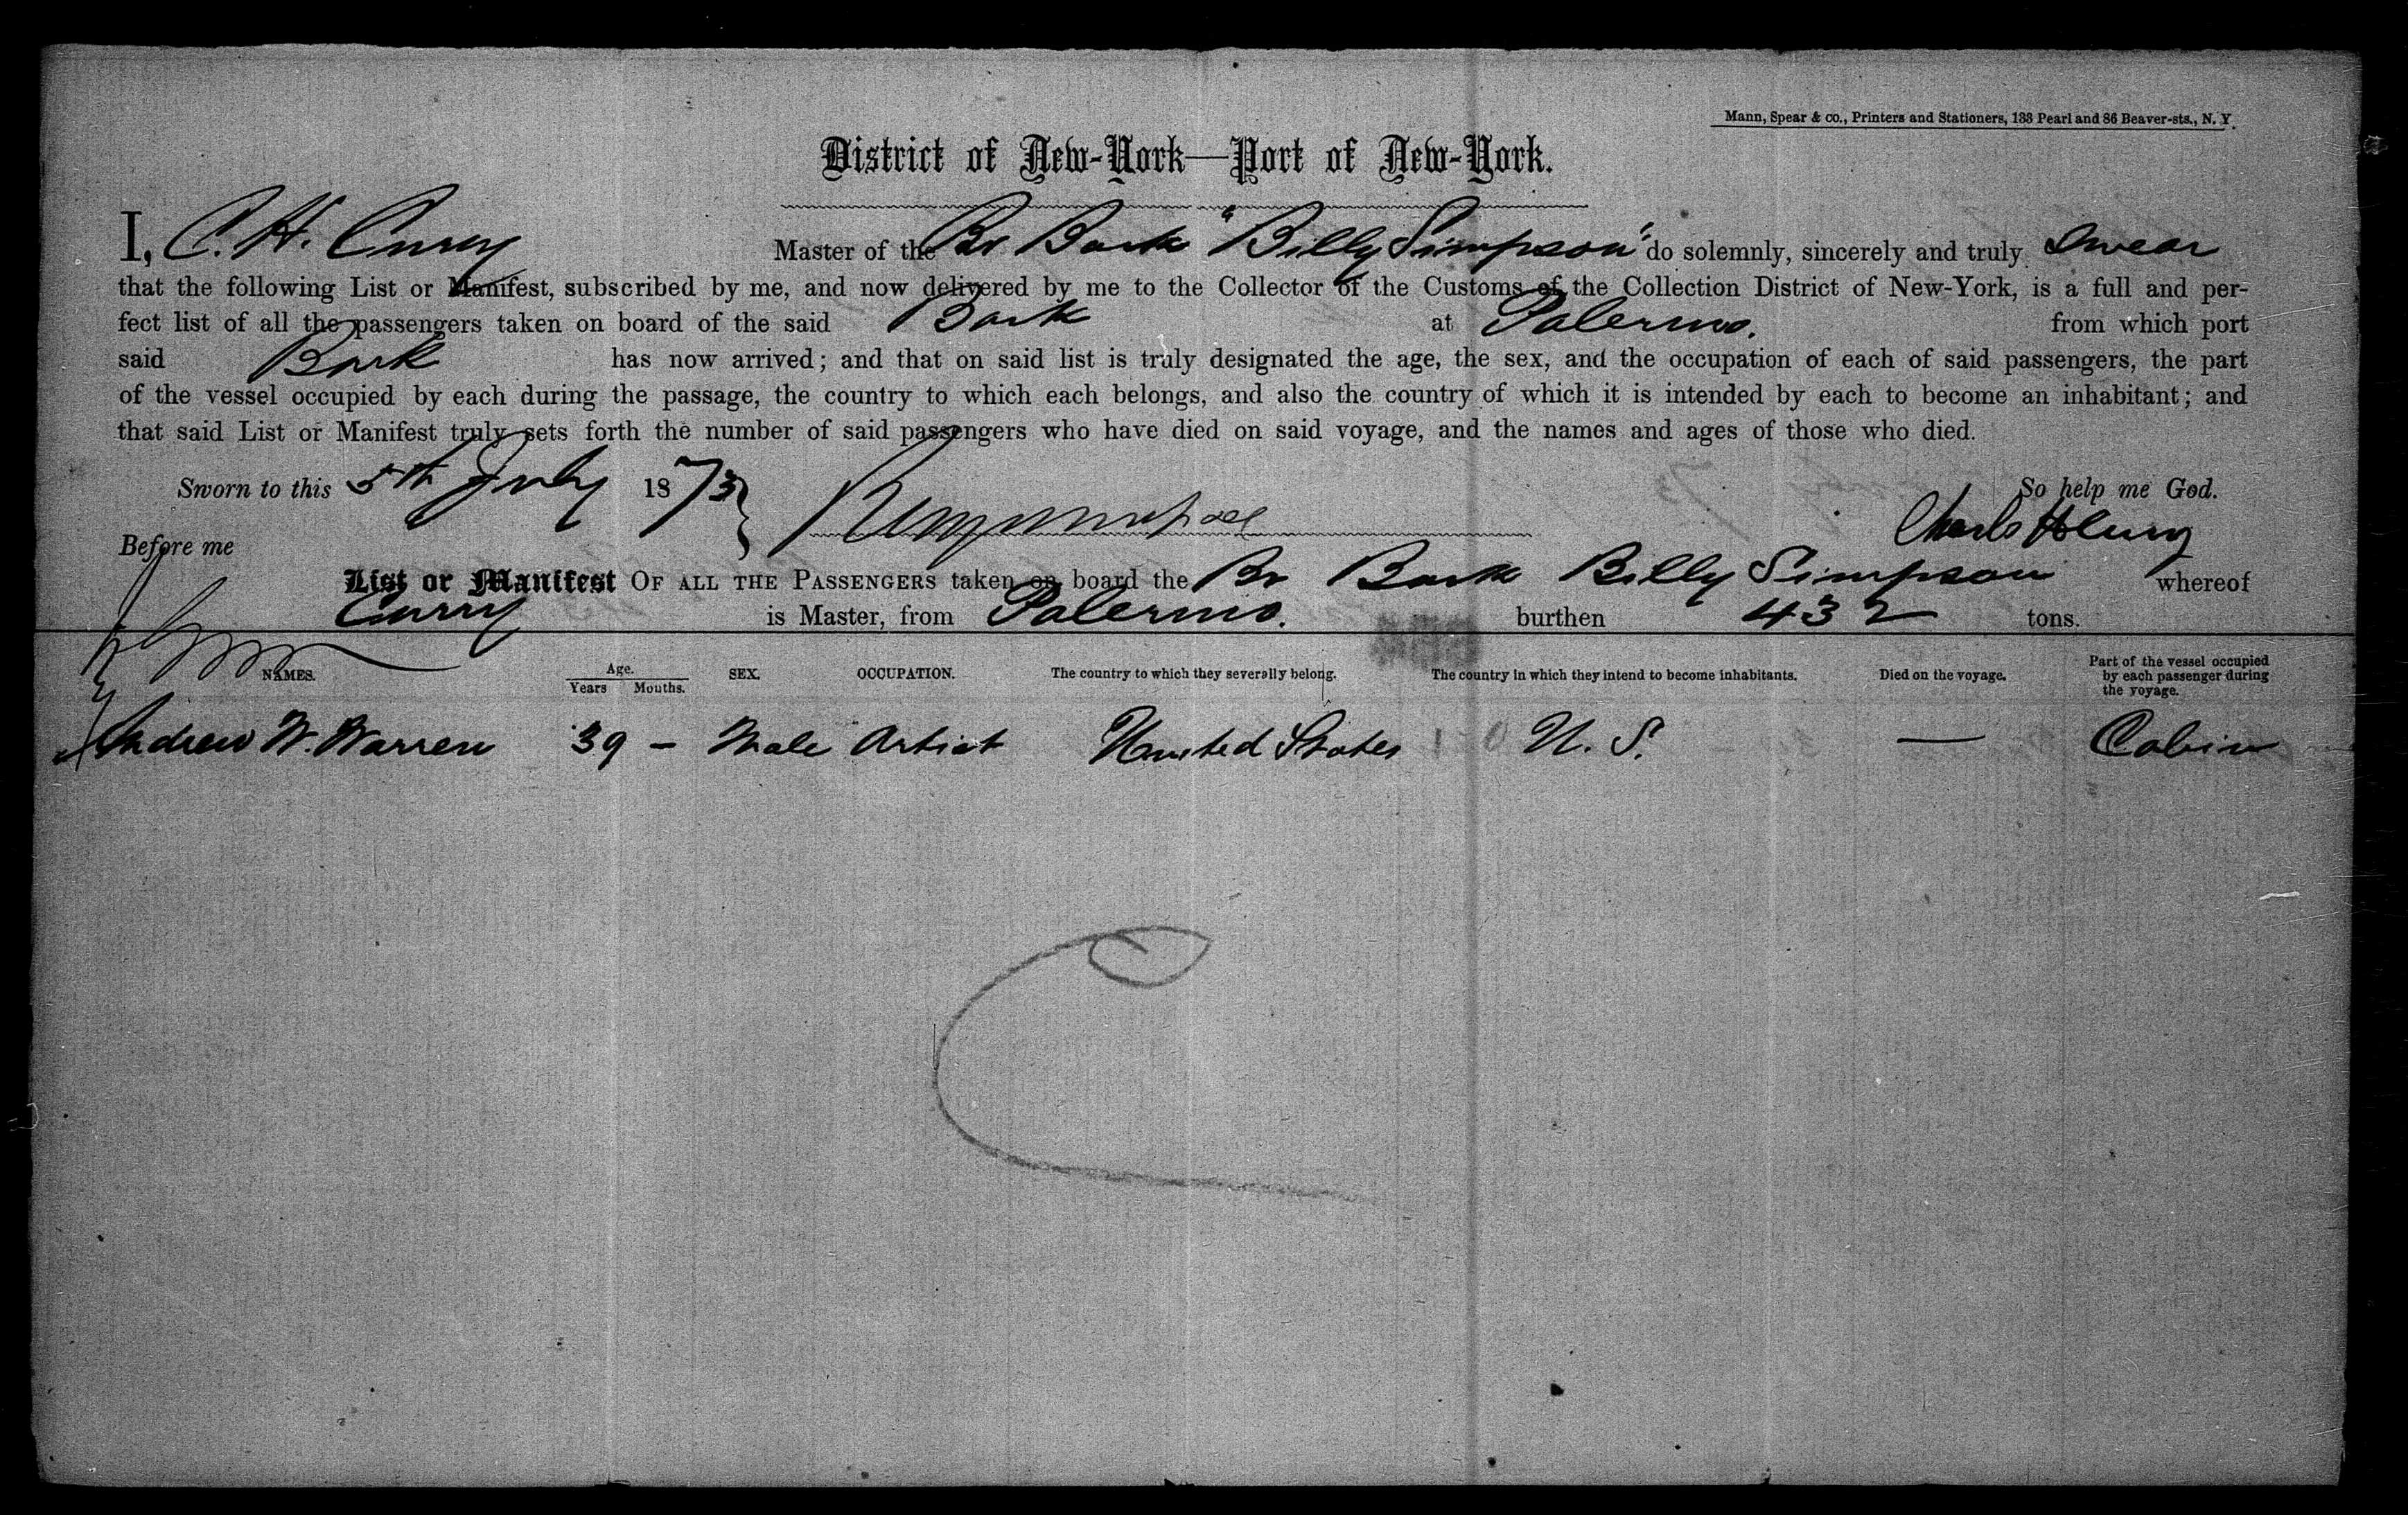 Mann, Spear & co., Printers and Stationers, 133 Pearl and 86 Beaver-sts., N. Y.
District of New-York—Port of New-York.
I, C. H. Curry Master of the Br Bark "Billy Simpson" do solemnly, sincerely and truly swear
that the following List or Manifest, subscribed by me, and now delivered by me to the Collector of the Customs of the Collection District of New-York, is a full and per-
fect list of all the passengers taken on board of the said Bark at Palermo. from which port
said Bark has now arrived; and that on said list is truly designated the age, the sex, and the occupation of each of said passengers, the part
of the vessel occupied by each during the passage, the country to which each belongs, and also the country of which it is intended by each to become an inhabitant; and
that said List or Manifest truly sets forth the number of said passengers who have died on said voyage, and the names and ages of those who died.
Sworn to this 5th July 1873 So help me God.
Before me Charls H Curry
List or Manifest OF ALL THE PASSENGERS taken on board the Br Bark Billy Simpson whereof
Curry is Master, from Palermo. burthen 432 tons.
NAMES. Age. Years Mouths. SEX. OCCUPATION. The country to which they severally belong. The country in which they intend to become inhabitants. Died on the voyage. Part of the vessel occupied by each passenger during the voyage.
Andrew W. Warren 39 – Male Artist United States U. S. — Cabin